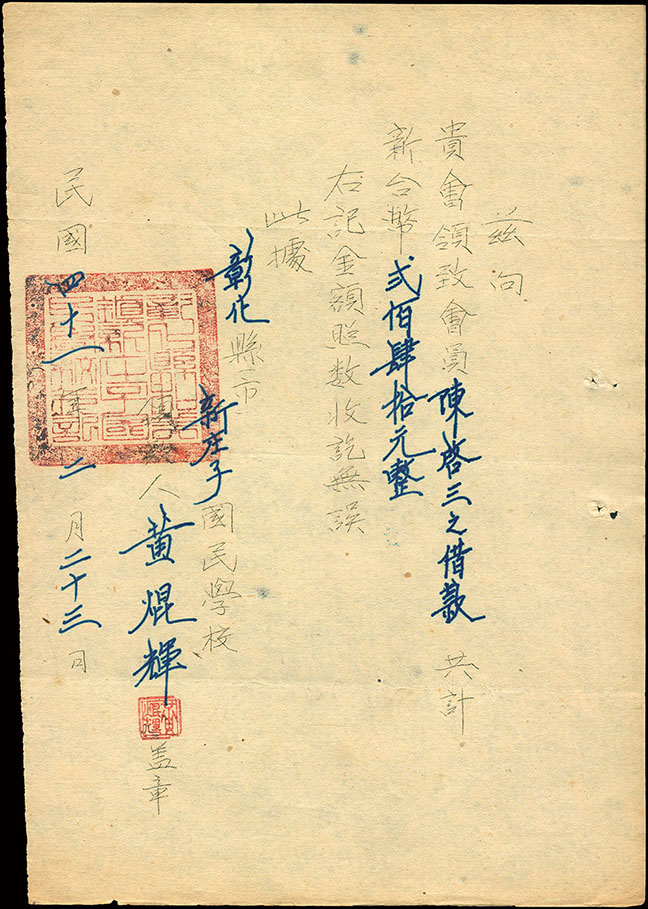 茲向
貴會領致會員陳啓三之借款 共計
新台幣貳佰肆拾元整
右記金額照数收訖無誤
此據
彰化縣市新庄子國民學校
人 黃焜輝 盖章
民國四十一年二月二十三日